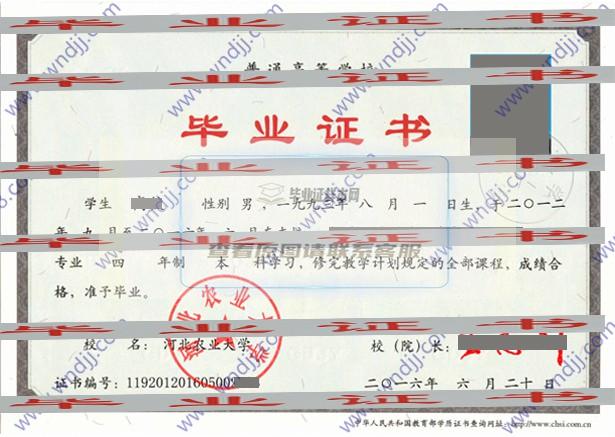 普通高等学校
毕业证书
毕业证样本网
学生 性别 男，一九九三年 八 月 一 日生，于二〇一二
年 九 月至二〇一六年 六 月在本校
查看原图请联系客服
专业 四 年制 本 科学习，修完教学计划规定的全部课程，成绩合
格，准予毕业。
校 名：河北农业大学 校（院）长：
证书编号：11920120160500 二〇一六年 六 月 二十 日
中华人民共和国教育部学历证书查询网址：http://www.chsi.com.cn
www.wndjj.com